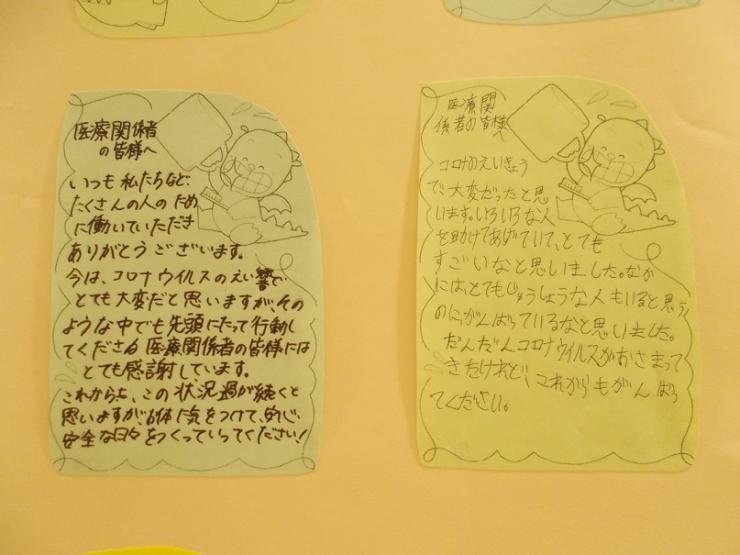 医療関係者
の皆様へ
いつも私たちなど、
たくさんの人のため
に働いていただき
ありがとうございます。
今は、コロナウイルスのえい響で
とても大変だと思いますが、その
ような中でも先頭にたって行動し
てくださる医療関係者の皆様には
とても感謝しています。
これからも、この状況過が続くと
思いますが、お体に気をつけて、安心
安全な日々をつくっていってください!
医療関
係者の皆様へ
コロナのえいきょう
で、大変だったと思
います。いろいろな人
を助けてあげていて、とても
すごいなと思いました。なか
には、とてもじゅうしょうな人もいると思う
のに、がんばっているなと思いました。
だんだんコロナウイルスがおさまって
きたけれど、これからもがんばっ
てください。